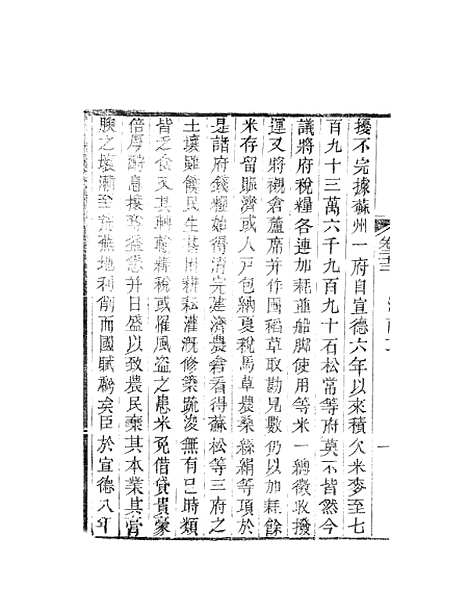 卷二十二
擾不完據蘇州一府自宣德六年以來積欠米麥至七
百九十三萬六千九百九十石松常等府莫不皆然今
議將府稅糧各連加耗並船脚使用等米一總徵收撥
運又將襯倉蘆席并作囤稻草取勘見數仍以加耗餘
米存留賑濟或人戶包納夏稅馬草農桑絲絹等項於
是諸府錢糧難得清完建濟農倉看得蘇松等三府之
土壤雖饒民生甚困耕耘灌溉修築疏浚無有已時類
皆乏食又其賦稅或罹風盜之患米免借貸貴豪
倍厚酬息援益愈并日盛以致農民棄其本業其膏
腴之壤漸至荒蕪地利削而國賦虧矣臣於宣德八年